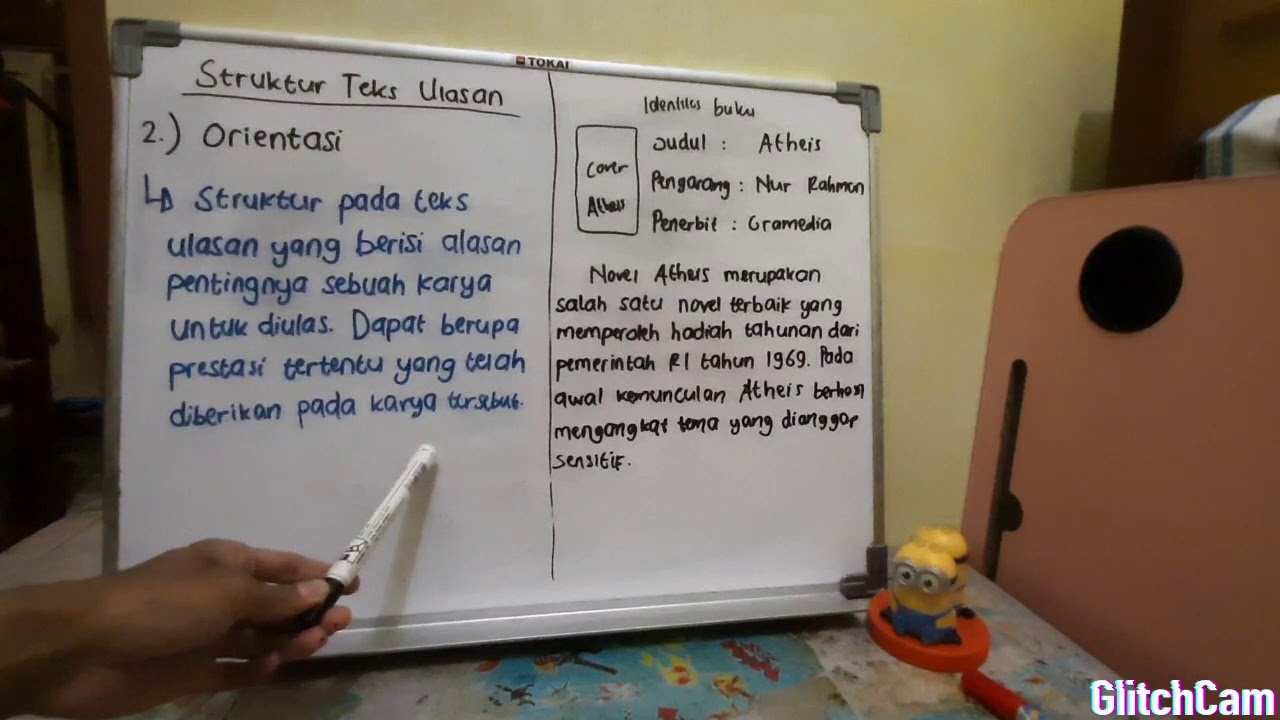 TOKAI
Struktur Teks Ulasan
2.) Orientasi
↳ Struktur pada teks
ulasan yang berisi alasan
pentingnya sebuah karya
untuk diulas. Dapat berupa
prestasi tertentu yang telah
diberikan pada karya tersebut.
Identitas buku
Cover
Atheis
Judul : Atheis
Pengarang : Nur Rahman
Penerbit : Gramedia
Novel Atheis merupakan
salah satu novel terbaik yang
memperoleh hadiah tahunan dari
pemerintah RI tahun 1969. Pada
awal kemunculan Atheis berhasil
mengangkat tema yang dianggap
sensitif.
GlitchCam